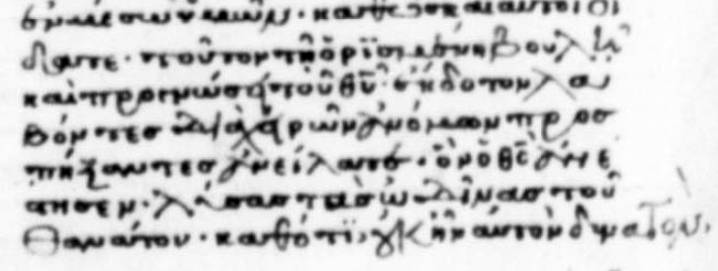 ἐν μέσω ὑμῶν· καθὼς καὶ αὐτοὶ οἴ
δατε· τοῦτον τῆ ὁρϊσμένη βουλῆ
καὶ προγνώσει τοῦ θῦ ἔκδοτον λα
βόντες διὰ χειρῶν ἀνόμων προσ
πήξαντες ἀνείλατε· ὃν ὁ θς ἀνέ
στησεν· λύσας τὰς ὠδῖνας τοῦ
θανάτου· καθότι οὐκ ἦν αὐτὸν δυνατὸν